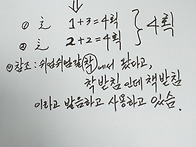 ① 辶 1+3=4획
② 辶 2+2=4획 } 4획
◎참조: 쉬엄쉬엄갈(착)에서 왔다고,
착받침인데 책받침
이라고 발음하고 사용하고 있슴.